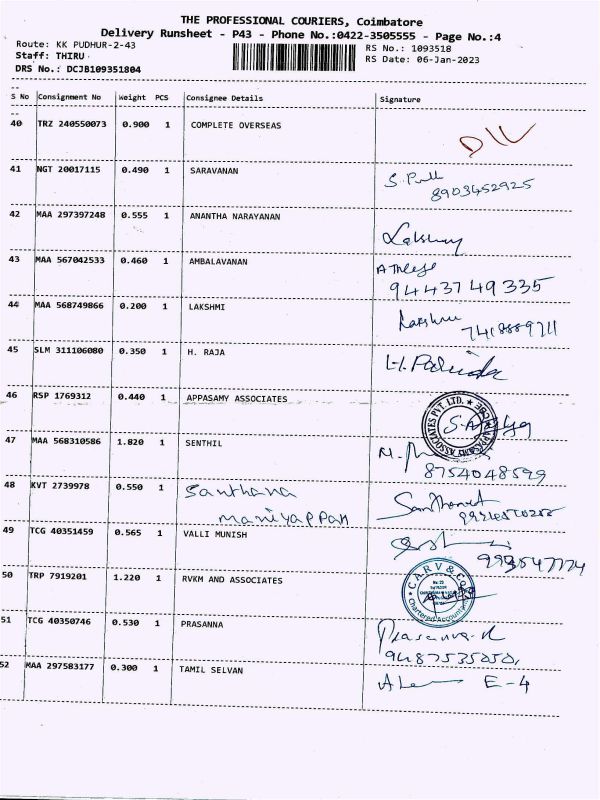 THE PROFESSIONAL COURIERS, Coimbatore
Delivery Runsheet - P43 - Phone No.:0422-3505555 - Page No.:4
Route: KK PUDHUR-2-43 RS No.: 1093518
Staff: THIRU RS Date: 06-Jan-2023
DRS No.: DCJB109351804
S No Consignment No Weight PCS Consignee Details Signature
40 TRZ 240550073 0.900 1 COMPLETE OVERSEAS
41 NGT 20017115 0.490 1 SARAVANAN
8903452925
42 MAA 297397248 0.555 1 ANANTHA NARAYANAN
Lakshmy
43 MAA 567042533 0.460 1 AMBALAVANAN
9443749335
44 MAA 568749866 0.200 1 LAKSHMI
45 SLM 311106080 0.350 1 H. RAJA
46 RSP 1769312 0.440 1 APPASAMY ASSOCIATES
ASSOCIATES PVT. LTD.
47 MAA 568310586 1.820 1 SENTHIL
8754048599
48 KVT 2739978 0.550 1 Santhana
maniyappan
49 TCG 40351459 0.565 1 VALLI MUNISH
50 TRP 7919201 1.220 1 RVKM AND ASSOCIATES
CARV & CO
Chartered Accountants
51 TCG 40350746 0.530 1 PRASANNA
Prasanna.R
52 MAA 297583177 0.300 1 TAMIL SELVAN
E-4